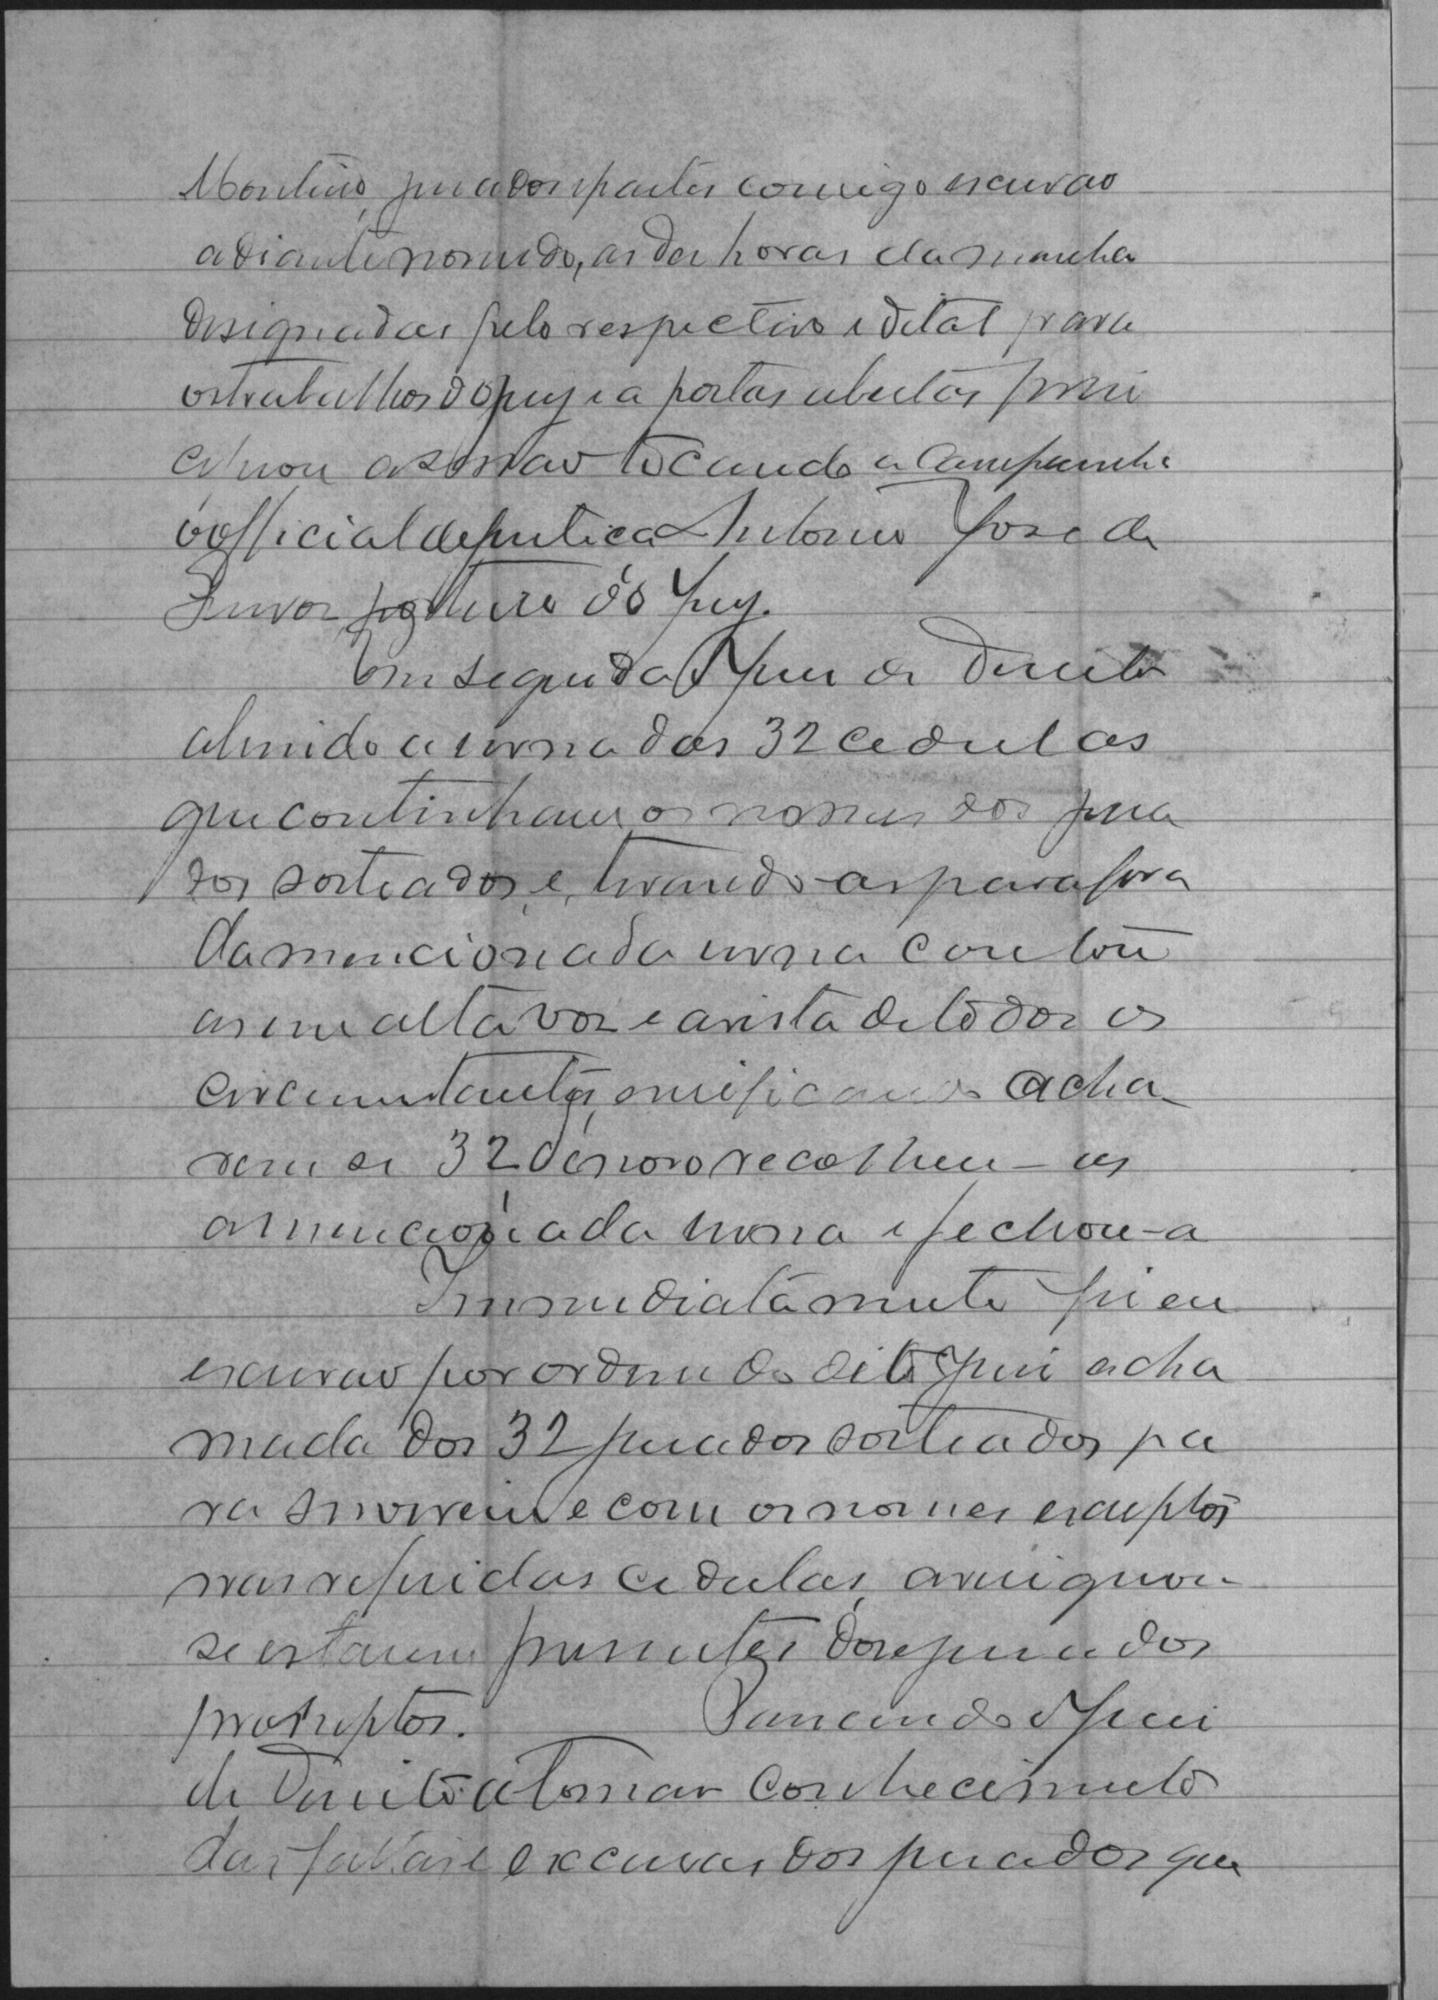 Monteiro, jurados e partes comigo escrivão
adiante nomeado, as dez horas da manhã
designadas pelo respectivo edital para
os trabalhos do jury e a portas abertas prin
cipiou a sessão tocando a campainha
o official de justiça Antonio José de
porteiro do Jury.
Em seguida o Juiz de Direito
abrindo a urna das 32 cedulas
que continham os nomes dos jura
dos sorteados e, tirando-as para fora
da mencionada urna contou
as em alta voz e a vista de todos os
circumstantes, verificando acha
rem se 32 de novo recolheu-as
a mencionada urna e fechou-a
Immediatamente fiz eu
escrivão por ordem do dito Juiz a cha
mada dos 32 jurados sorteados pa
ra servirem e com os nomes escriptos
nas referidas cedulas, averiguou-
se estarem presentes doze jurados
promptos. Passando o Juiz
de Direito a tomar conhecimento
das faltas e excusas dos jurados que